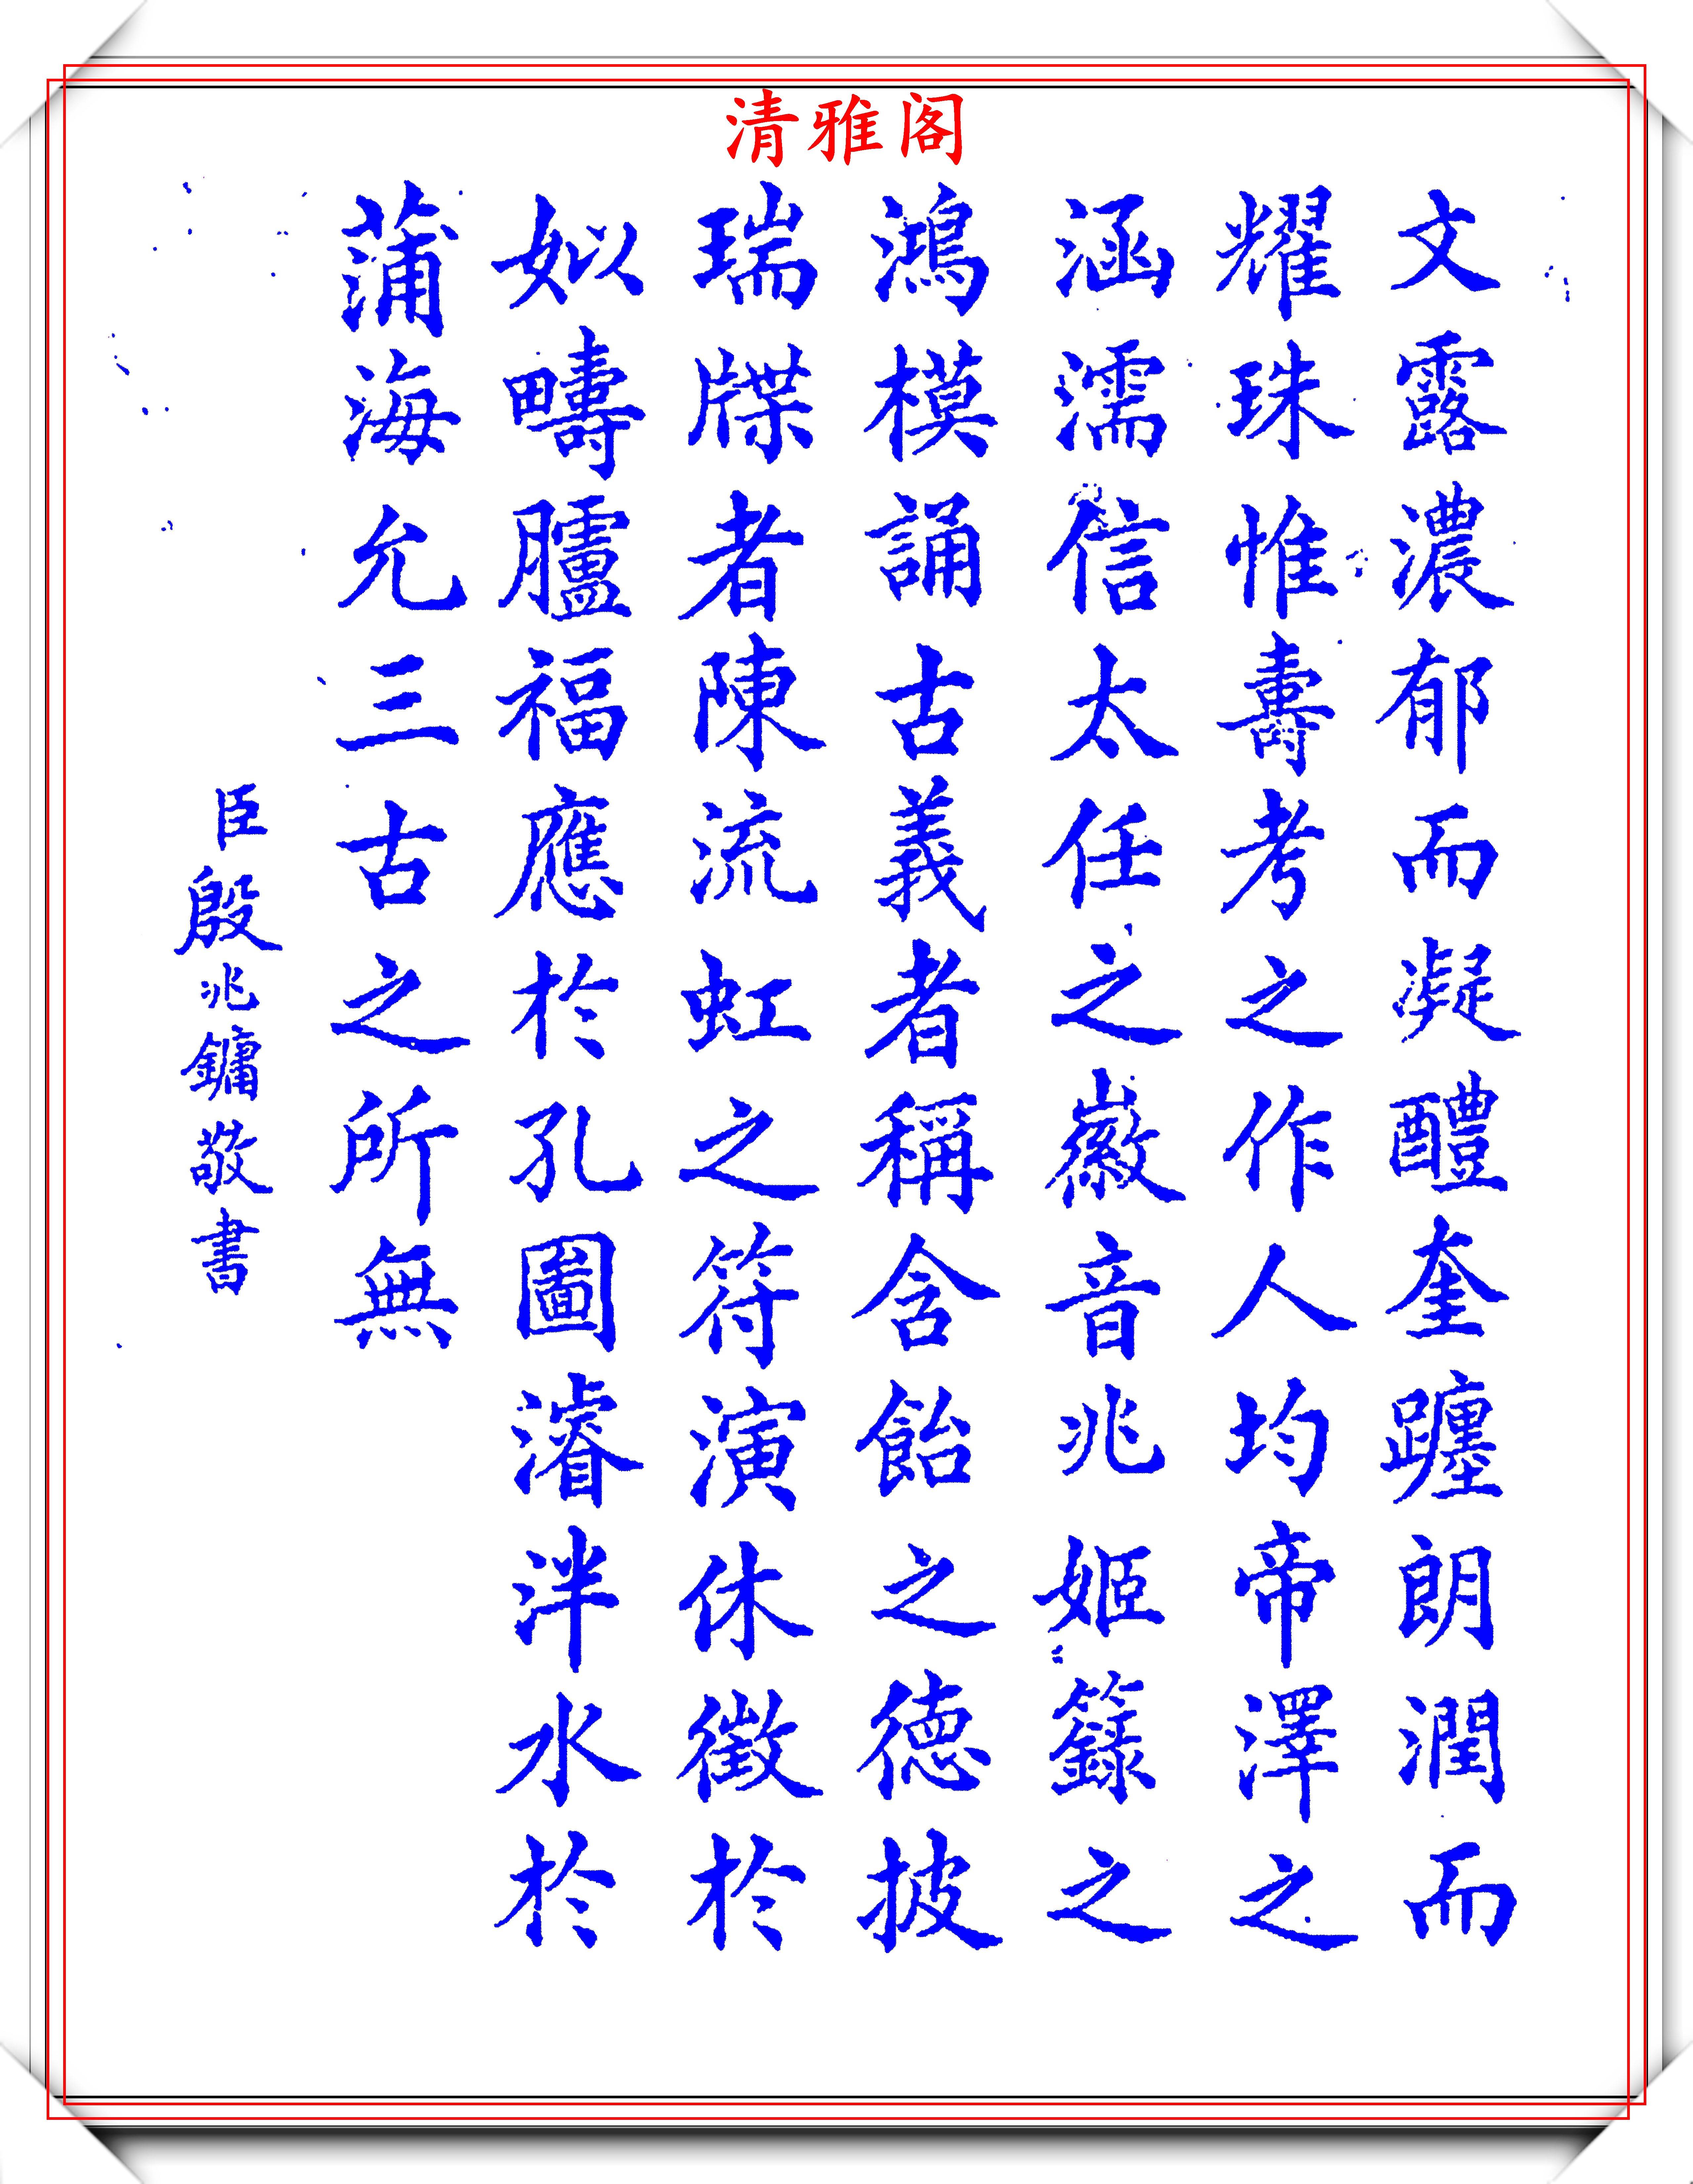 清雅阁
文露濃郁而凝醴奎躔朗潤而
耀珠惟壽考之作人均帝澤之
涵濡信太任之徽音兆姬籙之
鴻模誦古義者稱含飴之德披
瑞牒者陳流虹之符演休徵於
姒疇臚福應於孔圖濬泮水於
蒲海允三古之所無
臣殷兆鏞敬書